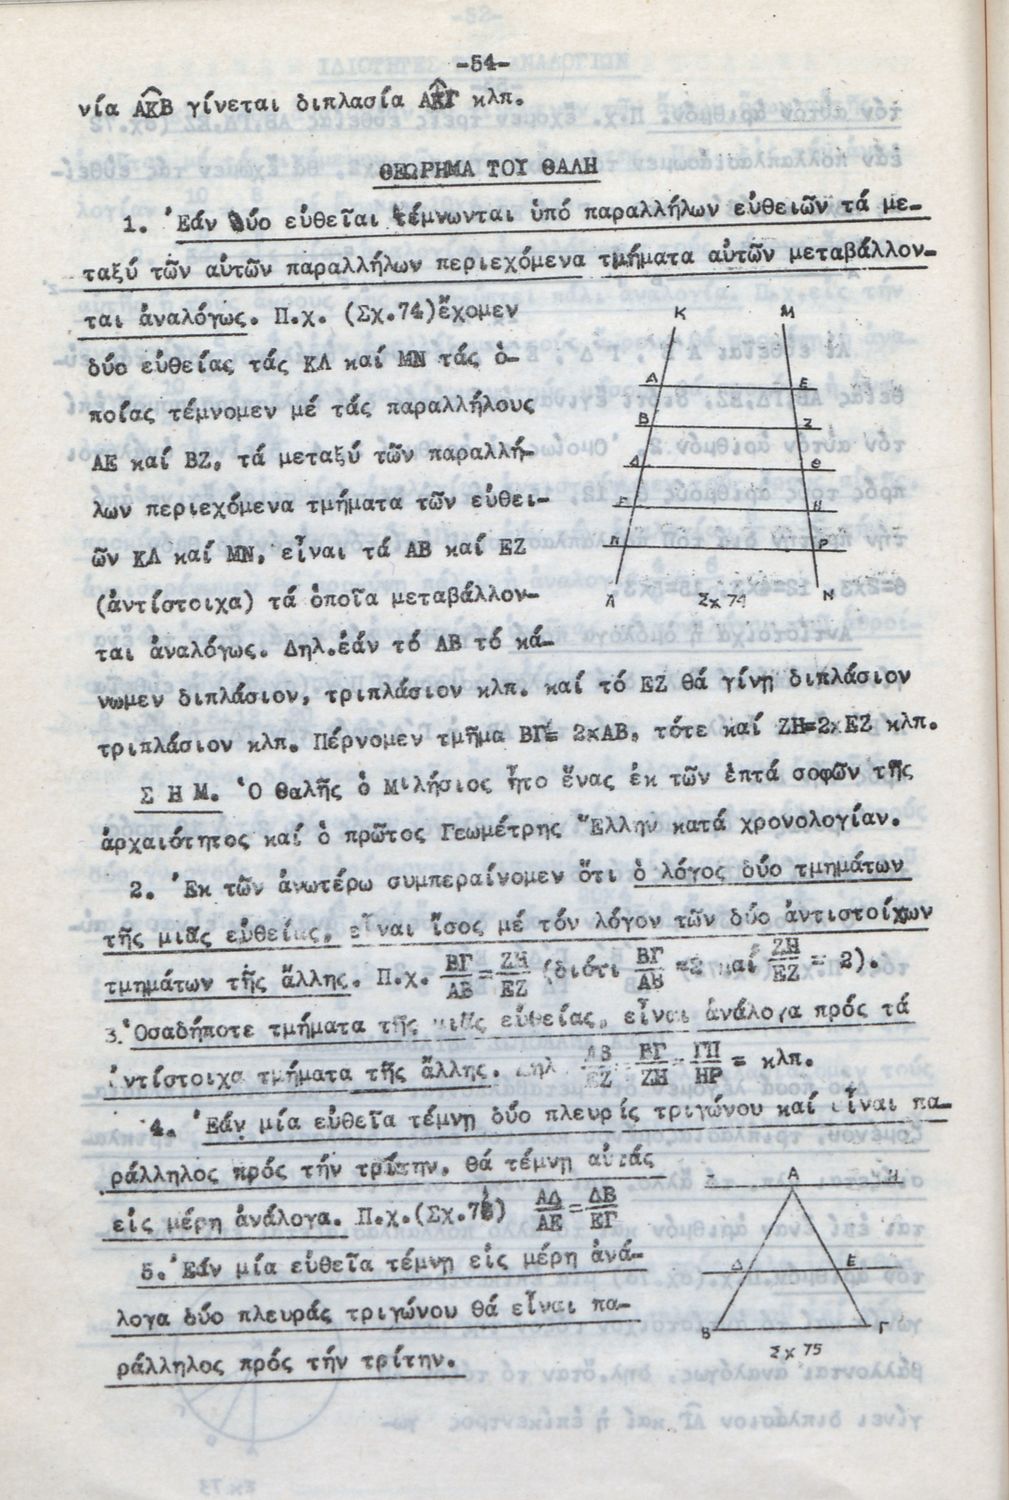 -54-
νία ΑΚ̂Β γίνεται διπλασία ΑΚ̂Γ κλπ.
ΘΕΩΡΗΜΑ ΤΟΥ ΘΑΛΗ
1. Ἐάν δύο εὐθεῖαι τέμνωνται ὑπό παραλλήλων εὐθειῶν τά με-
ταξύ τῶν αὐτῶν παραλλήλων περιεχόμενα τμήματα αὐτῶν μεταβάλλον-
ται ἀναλόγως. Π.χ. (Σχ.74)ἔχομεν
δύο εὐθείας τάς ΚΛ καί ΜΝ τάς ὁ-
ποίας τέμνομεν μέ τάς παραλλήλους
ΑΕ καί ΒΖ, τά μεταξύ τῶν παραλλή-
λων περιεχόμενα τμήματα τῶν εὐθει-
ῶν ΚΛ καί ΜΝ, εἶναι τά ΑΒ καί ΕΖ
(ἀντίστοιχα) τά ὁποῖα μεταβάλλον-
ται ἀναλόγως. Δηλ.ἐάν τό ΑΒ τό κά-
νωμεν διπλάσιον, τριπλάσιον κλπ. καί τό ΕΖ θά γίνῃ διπλάσιον
τριπλάσιον κλπ. Πέρνομεν τμῆμα ΒΓ= 2xΑΒ, τότε καί ΖΗ=2xΕΖ κλπ.
Κ Μ
Α Ε
Β Ζ
Δ Θ
Γ Η
Π Ρ
Λ Σχ 74 Ν
Σ Η Μ. Ὁ Θαλῆς ὁ Μιλήσιος ἦτο ἕνας ἐκ τῶν ἑπτά σοφῶν τῆς
ἀρχαιότητος καί ὁ πρῶτος Γεωμέτρης Ἕλλην κατά χρονολογίαν.
2. Ἐκ τῶν ἀνωτέρω συμπεραίνομεν ὅτι ὁ λόγος δύο τμημάτων
τῆς μιᾶς εὐθείας, εἶναι ἴσος μέ τόν λόγον τῶν δύο ἀντιστοίχων
τμημάτων τῆς ἄλλης. Π.χ. ΒΓ/ΑΒ = ΖΗ/ΕΖ (διότι ΒΓ/ΑΒ =2 καί ΖΗ/ΕΖ = 2).
3.Ὁσαδήποτε τμήματα τῆς μιᾶς εὐθείας, εἶναι ἀνάλογα πρός τά
ἀντίστοιχα τμήματα τῆς ἄλλης. Δηλ ΑΒ/ΕΖ = ΒΓ/ΖΗ = ΓΠ/ΗΡ = κλπ.
4. Ἐάν μία εὐθεῖα τέμνῃ δύο πλευράς τριγώνου καί εἶναι πα-
ράλληλος πρός τήν τρίτην, θά τέμνῃ αὐτάς
εἰς μέρη ἀνάλογα. Π.χ.(Σχ.75) ΑΔ/ΑΕ = ΔΒ/ΕΓ
5. Ἐάν μία εὐθεῖα τέμνῃ εἰς μέρη ἀνά-
λογα δύο πλευράς τριγώνου θά εἶναι πα-
ράλληλος πρός τήν τρίτην.
Ζ Α Η
Δ Ε
Β Γ
Σχ 75